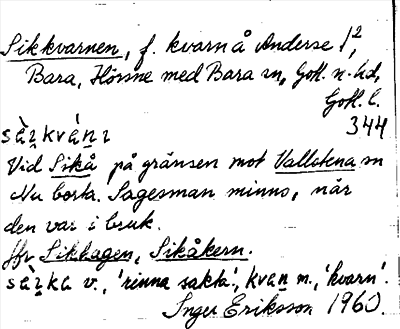 Sikkvarnen, f. kvarn å Anderse 1²,
Bara, Hörsne med Bara sn, Gotl. n. hd,
Gotl. l.
344
Vid Sikå på gränsen mot Vallstena sn
Nu borta. Sagesman minns, när
den var i bruk.
Jfr Sikhagen, Sikåkern.
v., 'rinna sakta', kvan m., 'kvarn'.
Inger Eriksson 1960.